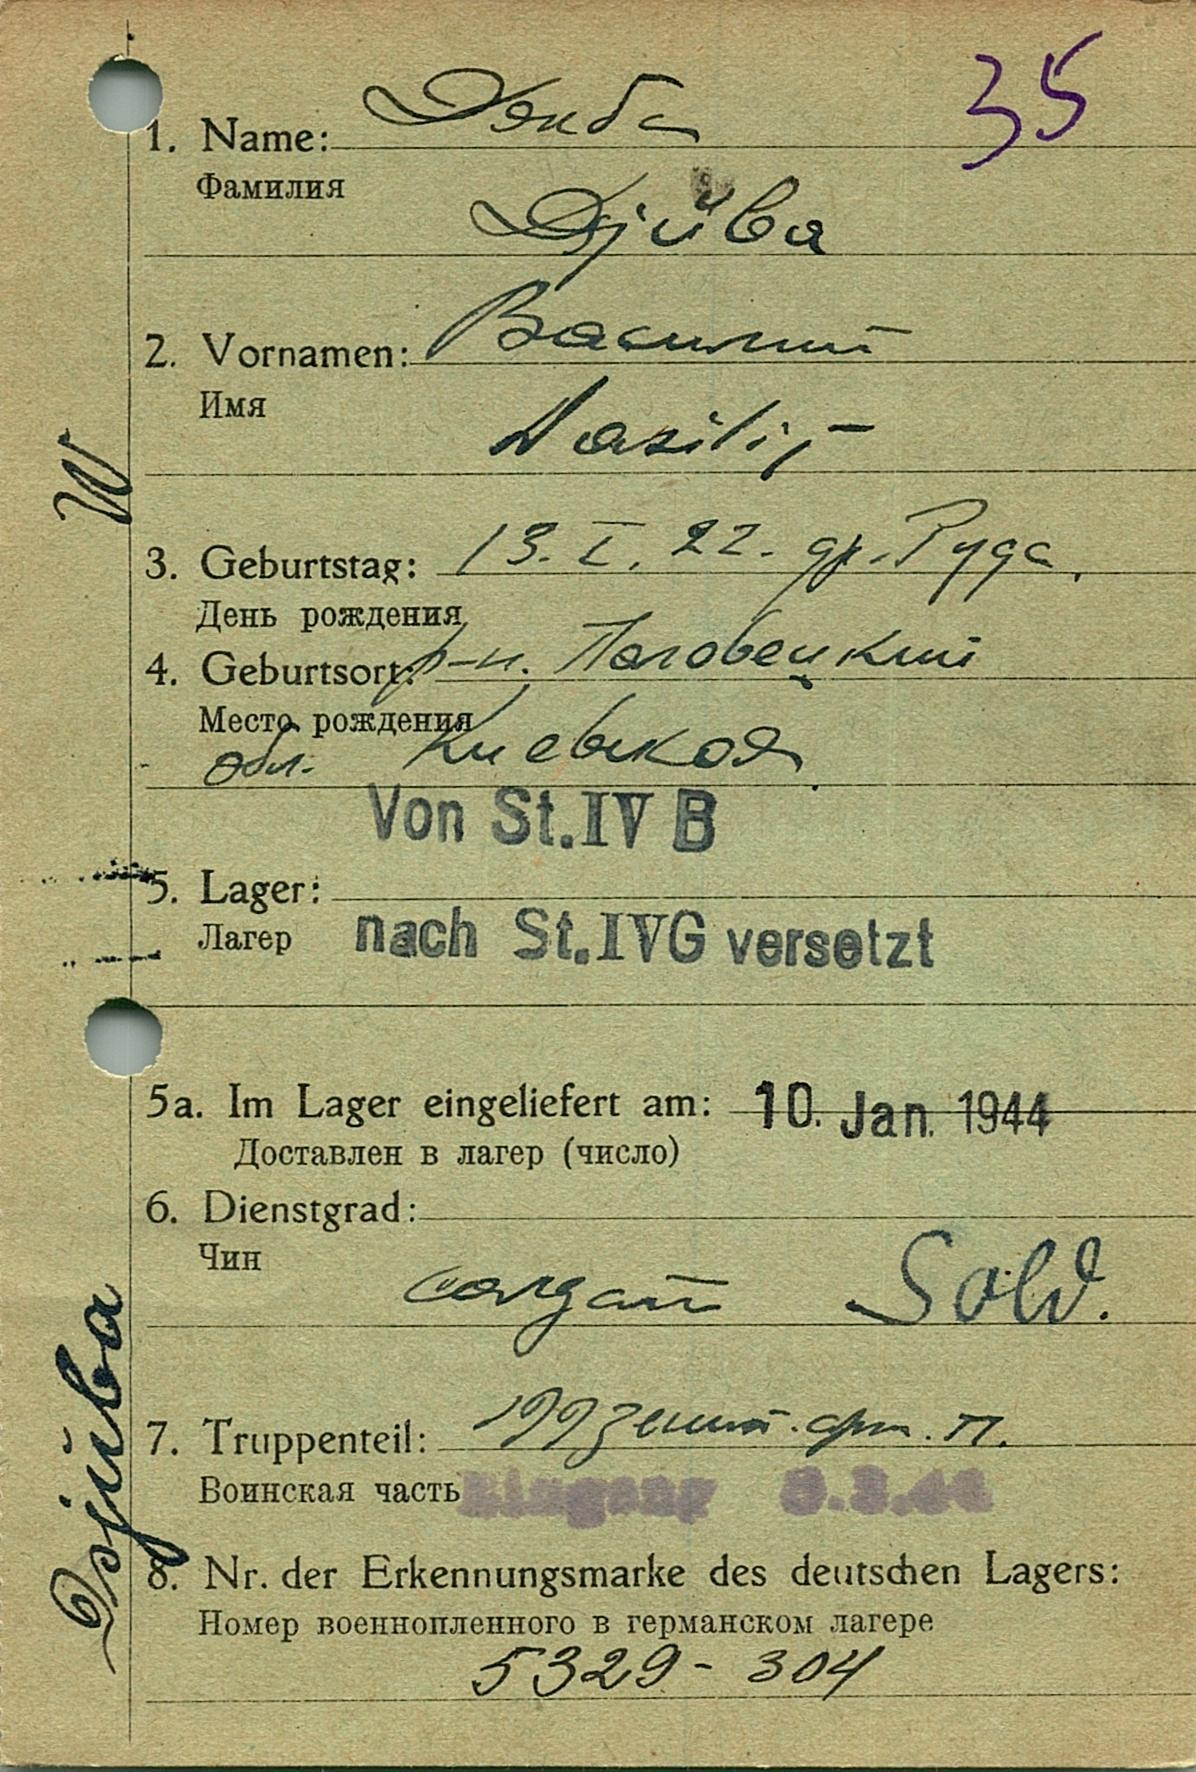 35
1. Name: Дзюба
Фамилия
Dsjuba
2. Vornamen: Василий
Имя
Wasilij
3. Geburtstag: 13. I. 22. др. Руда,
День рождения
4. Geburtsort: р-н.
Место рождения
обл. Киевской
Von St. IV B
5. Lager:
Лагер
nach St. IVG versetzt
5a. Im Lager eingeliefert am: 10. Jan. 1944
Доставлен в лагер (число)
6. Dienstgrad:
Чин
солдат Sold.
7. Truppenteil: зенит. арт. п.
Воинская часть Eingang
8. Nr. der Erkennungsmarke des deutschen Lagers:
Номер военнопленного в германском лагере
5329 - 304
W